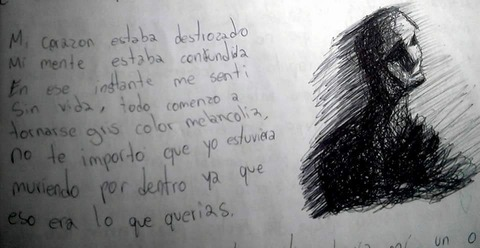 Mi corazon estaba destrozado
Mi mente estaba confundida
En ese instante me senti
Sin vida, todo comenzo a
tornarse gris color melancolia,
no te importo que yo estuviera
muriendo por dentro ya que
eso era lo que querias.
un